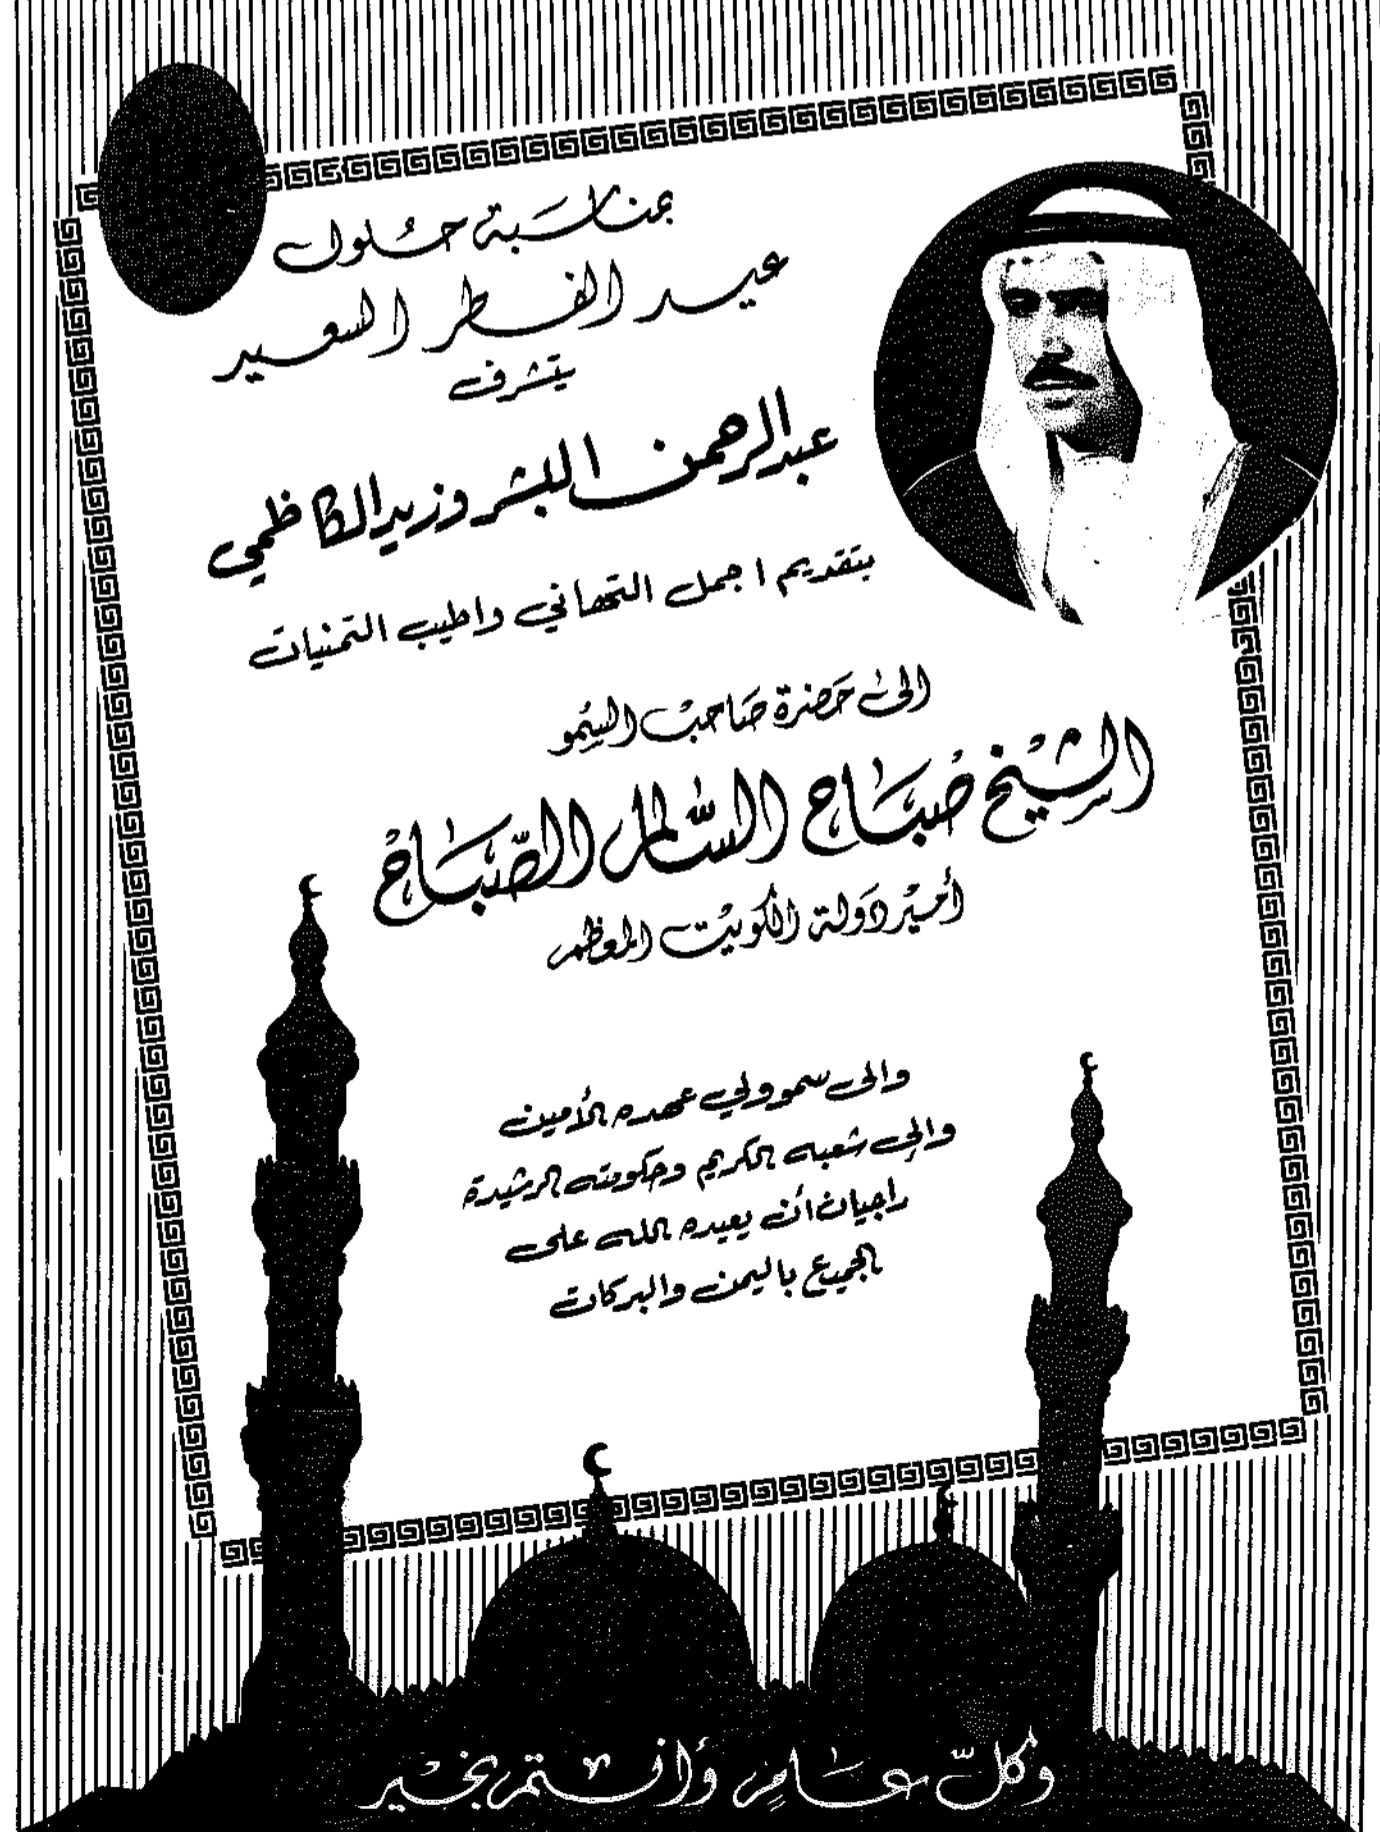 بمناسبة حلول
عيد الفطر السعيد
يتشرف
عبدالرحمن البشر وزيد الكاظمي
بتقديم اجمل التهاني واطيب التمنيات
الى حضرة صاحب السمو
الشيخ صباح السالم الصباح
أمير دولة الكويت المعظم
والى سمو ولي عهده الأمين
والى شعبه الكريم وحكومته الرشيدة
راجيان أن يعيده الله على
الجميع باليمن والبركات
وكل عام وأنتم بخير